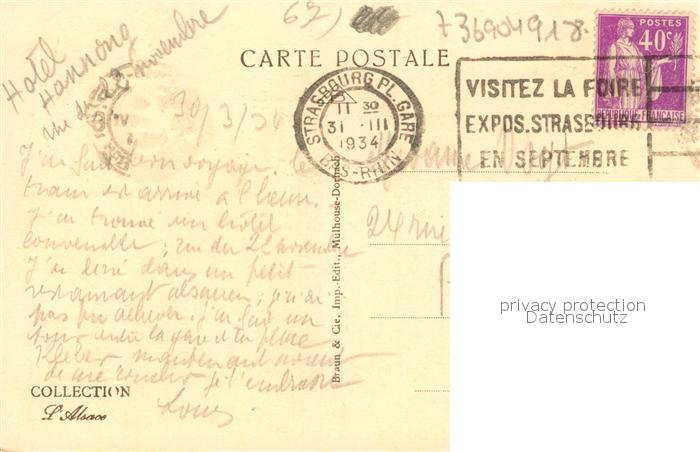 Hotel
Hannong
rue du 22 novembre
62)
736904918.
CARTE POSTALE
POSTES
40c
STRASBOURG PL. GARE
11 30
31 III
1934
BAS-RHIN
VISITEZ LA FOIRE
EXPOS. STRASBOURG
EN SEPTEMBRE
30/3/34
J'ai fait bon voyage, le
train est arrivé à l'heure.
J'ai trouvé un hôtel
convenable; rue du 22 novembre
J'ai diné dans un petit
restaurant alsacien; je n'ai
pas pu achever. J'ai fait un
tour entre la gare et la place
Kléber maintenant avant
de me coucher je t'embrasse
Louis
24 rue
Braun & Cie, Imp.-Edit., Mulhouse-Dornach
COLLECTION
L'Alsace
privacy protection
Datenschutz